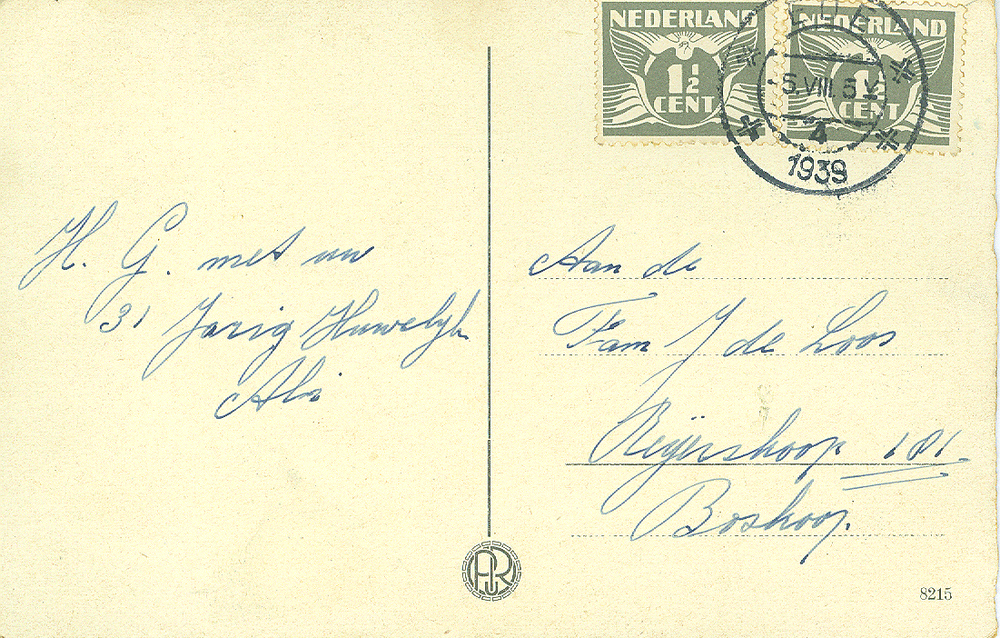 NEDERLAND
1½
CENT
NEDERLAND
1½
CENT
EDE
5.VIII.
4
1939
H. G. met uw
31 Jarig Huwelyk
Ali
Aan de
Fam J de Loos
Reijerskoop 181.
Boskoop.
AJR
8215